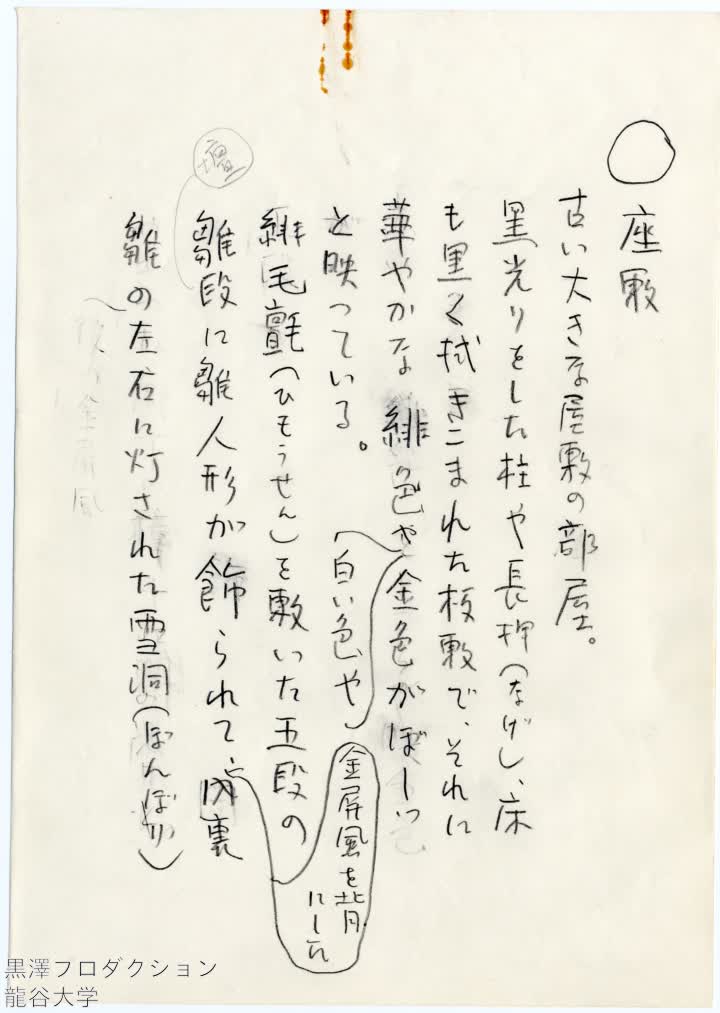 ○座敷
古い大きな屋敷の部屋。
黒光りをした柱や長押(なげし、床
も黒く拭きこまれた板敷で、それに
華やかな緋色や金色がぼーっ
(白い色や)
と映っている。
緋毛氈(ひもうせん)を敷いた五段の
雛段に雛人形が飾られて、内裏
金屏風を背
にした
壇
雛の左右に灯された雪洞(ぼんぼり)
金屏風
黒澤プロダクション
龍谷大学